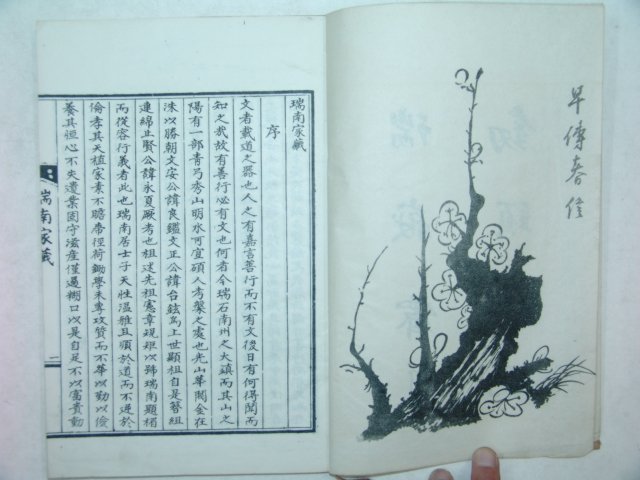 早傳春信
瑞南家藏
序
文者載道之器也人之有嘉言善行而不有文後日有何得聞而
知之哉故有善行必有文也何者今瑞石南州之大鎮而其山之
陽有一部靑芎秀山明水可宜碩人考槃之處也光山華閥金在
洙以勝朝文安公諱良鑑文正公諱台鉉爲上世顯祖自是簪組
連綿止賢公諱永夏厥考也祖述先祖憲章現矩以號瑞南顯楣
而從容行義者此也瑞南居士子天性溫雅且順於道而不逆於
倫孝其天植家素不贍帶徑荷鋤學未專攻質而不華以勤以儉
養其恒心不失遺業固守滋産僅過糊口以是自足不以富貴動
瑞南家藏
二